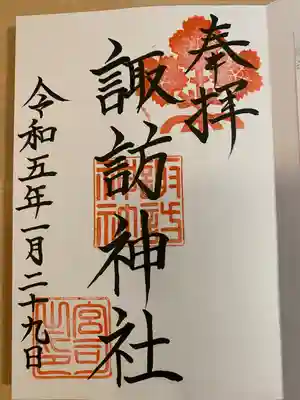 奉拝
諏訪神社
令和五年一月二十九日
宮司之印